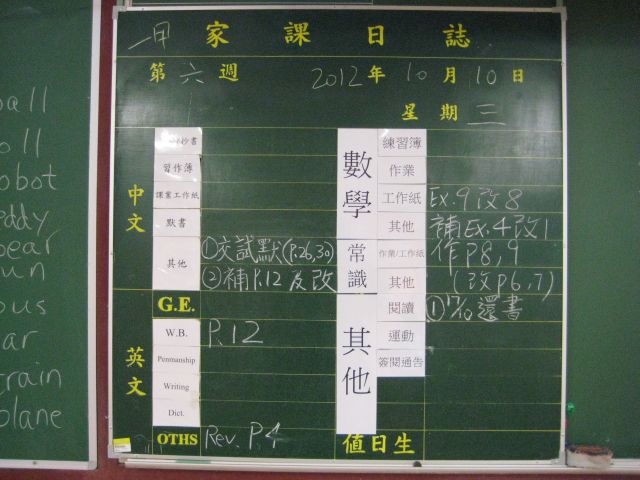 一甲 家課日誌
第六週 2012年10月10日
星期三
中文
抄書
習作簿
課業工作紙
默書
其他 ①交試默(P.26,30)
②補P.12及改
G.E.
英文
W.B. P.12
Penmanship
Writing
Dict.
OTHS Rev. P.4
數學
練習簿
作業
工作紙 Ex.9改8
其他 補Ex.4改1
常識
作業/工作紙 作P8,9
其他 (改P6,7)
其他
閱讀 ① 還書
運動
簽閱通告
值日生
all
oll
obot
eddy
bear
un
ous
ar
train
plane